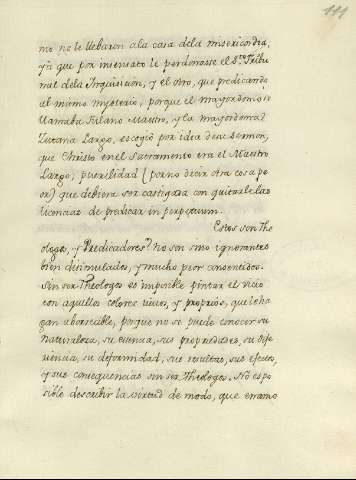 111
mo no le llebaron a la casa dela misericordia,
yà que por mientato le perdonasse el S.to Tribu
nal dela Inquisicion, y el otro, que predicando
al mismo mysterio, porque el mayordomo se
llamaba Fulano Maestro, y la mayordoma
Zutana Largo, escogiò por idea de su Sermon,
que Christo en el Sacramento era el Maestro
Largo; puerilidad (por no decir otra cosa pe
or) que debiera ser castigada con quitarle las
licencias de predicar in perpetuum.
Estos son The
ologos, y Predicadores? no son sino ignorantes
bien disimulados, y mucho peor consentidos.
Sin ser Theologos es imposible pintar el vicio
con aquellos colores vivos, y proprios, que le ha
gan aborrecible, porque no se puede conocer su
naturaleza, su esencia, sus propriedades, su dife
rencia, su deformidad, sus resultas, sus efectos,
y sus consequencias sin ser Theologo. Nò es po
sible describir la virtud de modo, que enamo